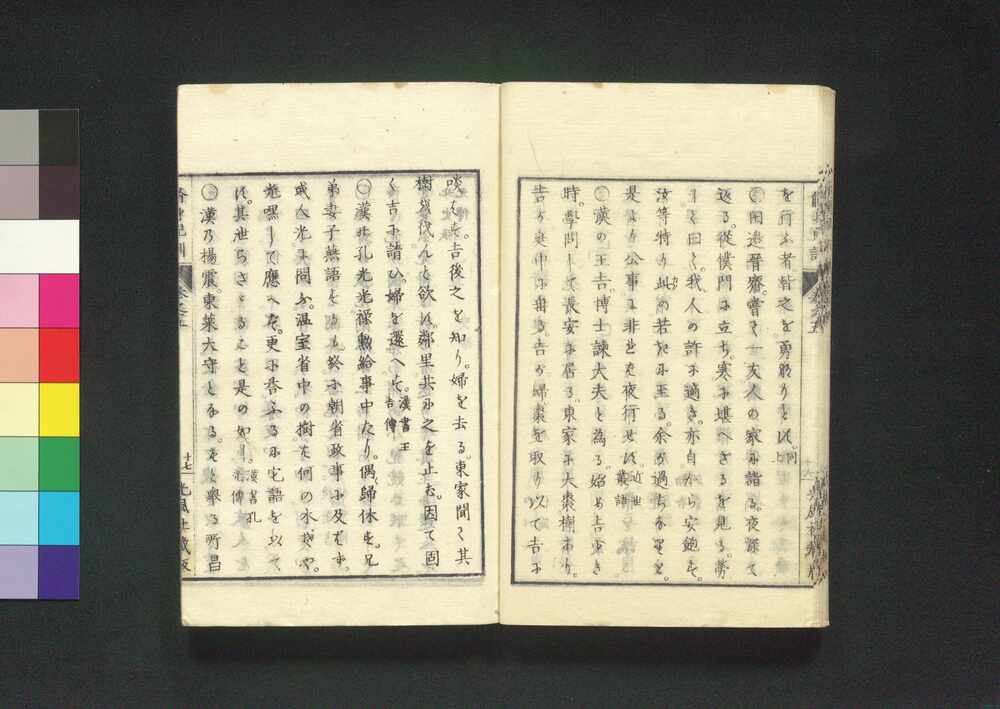 を行ふ者皆之を勇服りとす。同上
〇田邉晉齋。嘗て一友人の家に詣る。夜深て
返る。從僕門に立ち。寒に堪へざるを見る。勞
て曰く。我人の許に適き。亦自から安飽す。
汝等特り此の若きに至る。余が過ちなりと。
是より公事に非せば夜行せず。近世叢語
〇漢の王吉。博士諫大夫と為る。始め吉少き
時。學問して長安に居る。東家に大棗樹あり。
吉が庭中に垂る。吉が婦棗を取り以て吉に
啖はす。吉後之を知り。婦を去る。東家聞て其
樹を伐んと欲す。鄰里共に之を止む。因て固
く吉に請ひ。婦を還へす。漢書王吉傳
〇漢孔光。光祿勲給事中たり。偶歸休す。兄
弟妻子燕語をるも終に朝省政事に及ばず。
或人光に問ふ。温室省中の樹は何の木ぞや。
光嘿して應へず。更に答ふるに它語を以て
す。其泄らさざること是の如し。漢書孔光傳
〇漢乃楊震。東萊大守となる。もと舉る所昌
十七